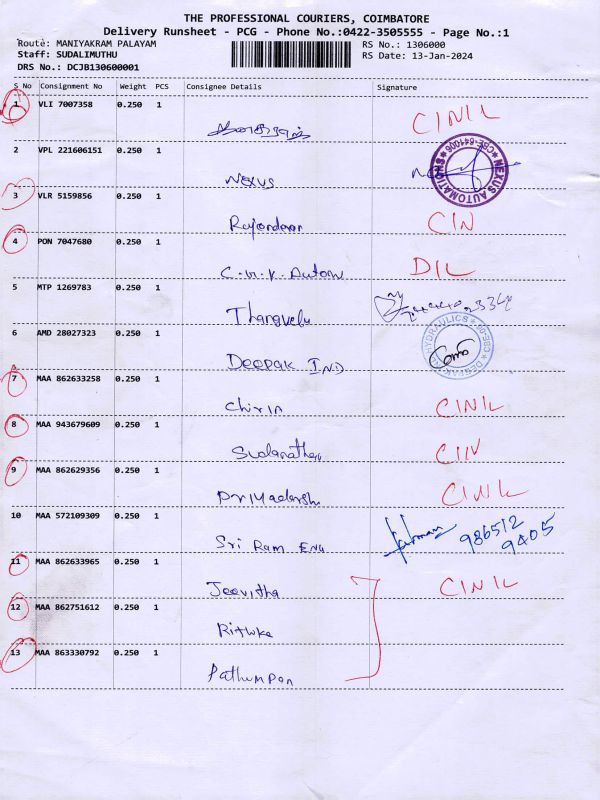 THE PROFESSIONAL COURIERS, COIMBATORE
Delivery Runsheet - PCG - Phone No.:0422-3505555 - Page No.:1
Route: MANIYAKRAM PALAYAM RS No.: 1306000
Staff: SUDALIMUTHU RS Date: 13-Jan-2024
DRS No.: DCJB130600001
S No Consignment No Weight PCS Consignee Details Signature
1 VLI 7007358 0.250 1 CINIL
2 VPL 221606151 0.250 1
NEXUS
NEXUS AUTOMATION CBE-641006
3 VLR 5159856 0.250 1 CIN
Rajendaran
4 PON 7047680 0.250 1 DIL
C.M.K. Autom
5 MTP 1269783 0.250 1
Thangvelu
6 AMD 28027323 0.250 1
HYDRAULICS
Deepak IND
7 MAA 862633258 0.250 1
Chirin CINIL
8 MAA 943679609 0.250 1
CIIV
9 MAA 862629356 0.250 1
Priyadarshi CINIL
10 MAA 572109309 0.250 1 986512
Sri Ram Eng 9405
11 MAA 862633965 0.250 1
Jeevitha CINIL
12 MAA 862751612 0.250 1
Rithwka
13 MAA 863330792 0.250 1
Pathumpan